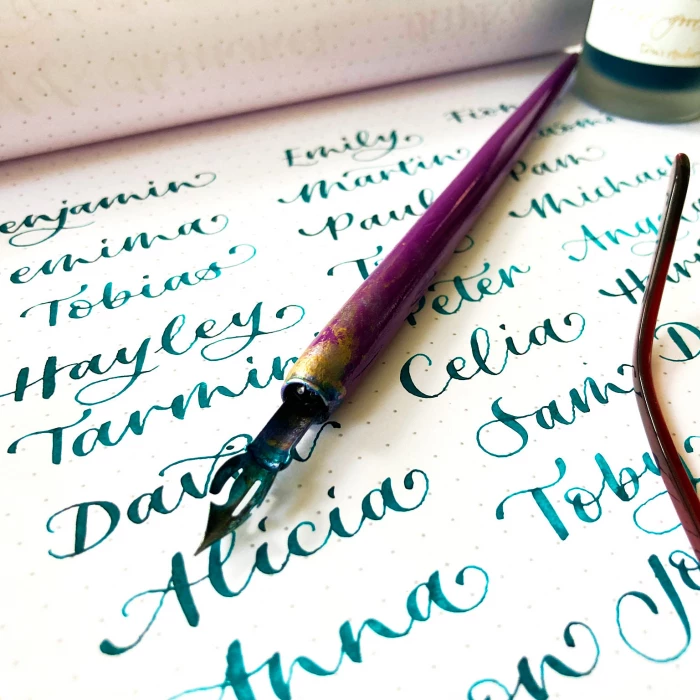 Emily
enjamin
Martin
Pam
emima
Paul
Michael
Tobias
Hayley
Peter
Tarmin
Celia
Sam
Dav
Toby
Alicia
Anna
on Jo